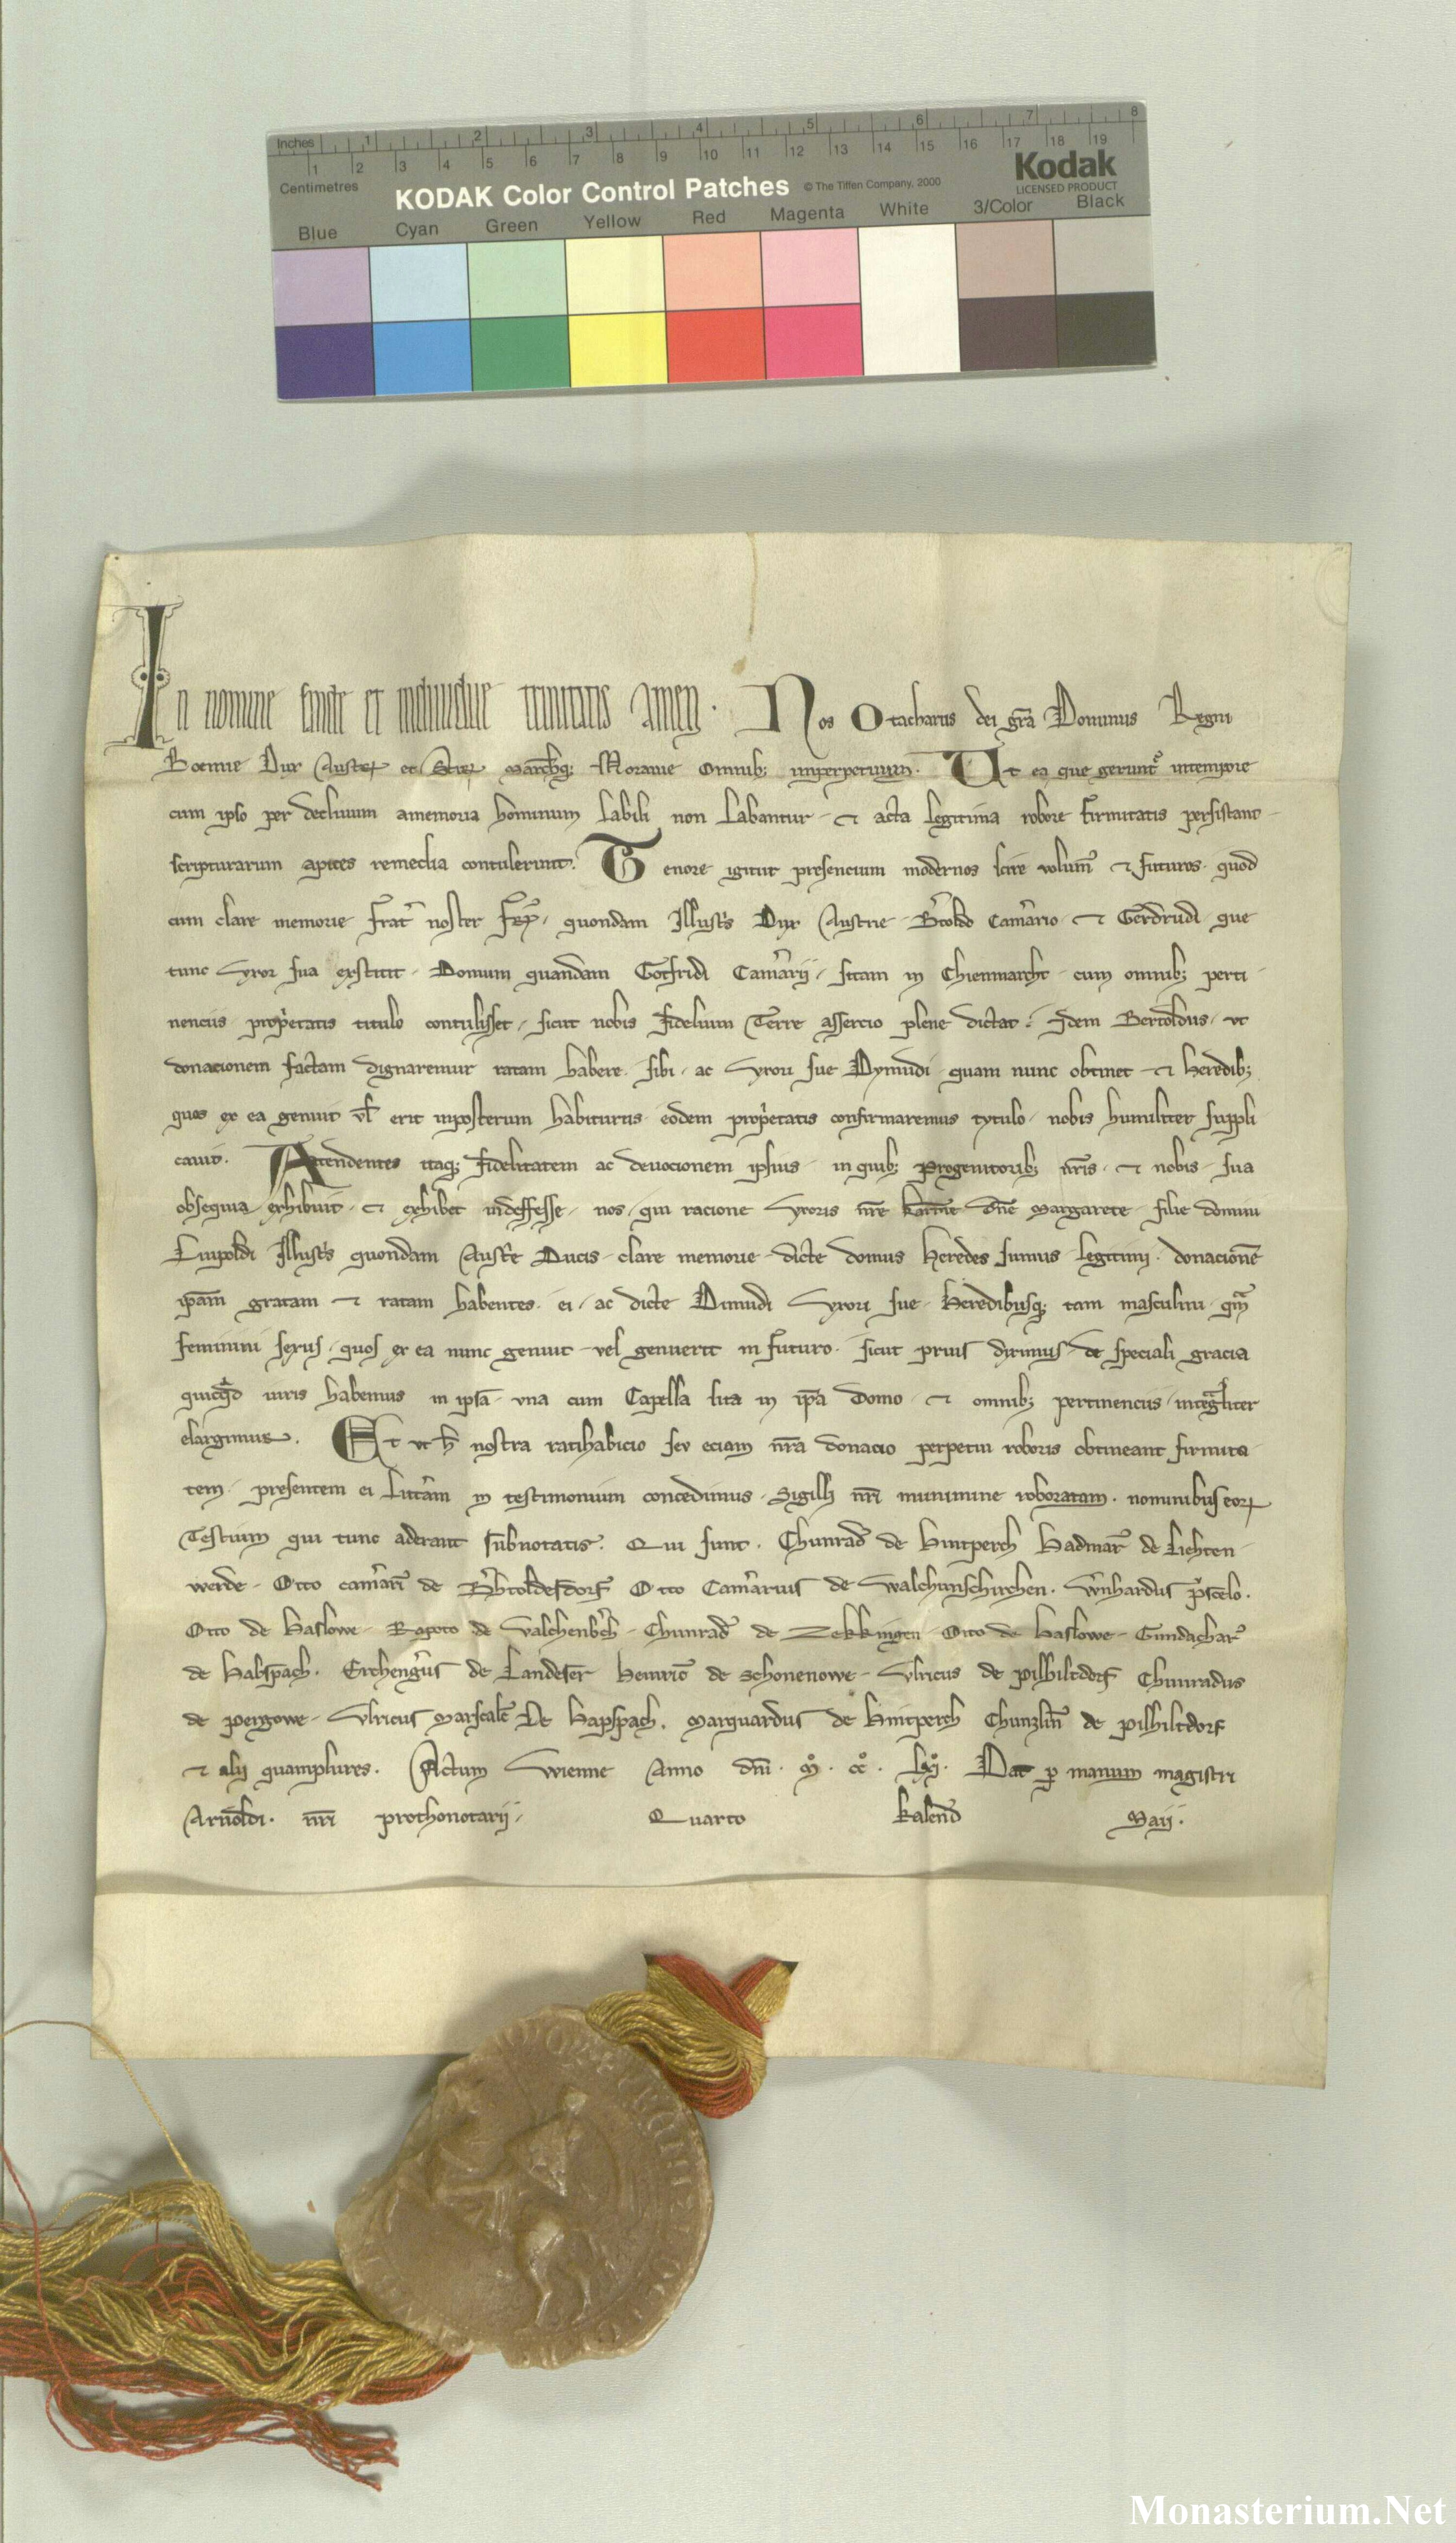 Inches 1 2 3 4 5 6 7 8
1 2 3 4 5 6 7 8 9 10 11 12 13 14 15 16 17 18 19
Centimetres
KODAK Color Control Patches © The Tiffen Company, 2000 Kodak
LICENSED PRODUCT
Blue Cyan Green Yellow Red Magenta White 3/Color Black
In nomine sancte et indiuidue trinitatis amen. Nos Otacharus dei gr̄a Dominus Regni
Boemie Dux Austr et Stir March̄q; Morauie Omnib; imperpetuum. Ut ea que gerunt᷑ intempore
cum ipso per decliuum amemoria hominum labili non labantur & acta legitima robore firmitatis persistant
scripturarum apices remedia contulerunt. Tenore igitur presencium modernos scire volum᷑ & futuros quod
cum clare memorie frat̄ noster quondam Illust̄s Dux Austrie B̄toldo Cam̄ario & Gerdrudi que
tunc vxor sua exstitit Domum quandam Gotfridi Cam̄arij sitam in Chienmarcht cum omnib; perti
nenciis prop̄etatis titulo contulisset sicut nobis fidelium Terre assercio plene dictat Idem Bertoldus vt
donacionem factam dignaremur ratam habere sibi ac vxori sue Dymudi quam nunc obtinet & heredib;
quos ex ea genuit vl̄ erit inposterum habiturus eodem prop̄etatis confirmaremus tytulo nobis humiliter suppli
cauit. Attendentes itaq; fidelitatem ac deuocionem ipsius in quib; progenitorib; nr̄is & nobis sua
obsequia exhibuit & exhibet indeffesse nos qui racione vxoris nr̄e karīme dn̄e Margarete filie domini
Liupoldi Illust̄s quondam Aust̄e Ducis clare memorie dicte domus heredes sumus legitimi donacionē
ip̄am gratam & ratam habentes ei ac dicte Dimudi vxori sue heredibusq; tam masculini qm̄
feminini sexus quos ex ea nunc genuit vel genuerit in futuro sicut prius diximus de speciali gracia
quicq̄d iuris habemus in ip̄sa vna cum Capella sita in ip̄a domo & omnib; pertinenciis inteḡliter
elargimus. Et vt h̄ nostra ratihabicio seu eciam nr̄a donacio perpetui roboris obtineant firmita
tem presentem ei litt̄am in testimonium concedimus Sigilli nr̄i munimine roboratam nominibus eorꝝ
Testium qui tunc aderant subnotatis. Qui sunt. Chunrad᷑ de hintperch hadmar᷑ de Liehten
werde Otto cam̄ari᷑ de B̄htoldesdorf Otto Cam̄arius de Walchunschirchen. W̄nhardus
Otto de haslowe Rapoto de valchenb̄ch Chunrad᷑ de Zekkingen Otto de haslowe Gundachar᷑
de habspach. Erchenḡus de Landeser heinric᷑ de Schonenowe vlricus de pilhiltdorf Chunradus
de pergowe vlricus Marscalc᷑ De hapspach. Marquardus de hintperch Chunzlin᷑ de pilhiltdorf
& alii quamplures. Actum Wienne Anno dn̄i. m̊. cc̊. Dat p̱ manum magistri
Arnoldi. nr̄i prothonotarij Quarto kalend̄ Maij.
Monasterium.Net